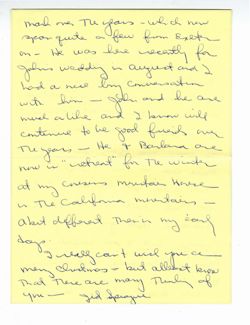 much over the years - which now
span quite a few from Exeter
on - He was here recently for
John's wedding in August and I
had a nice long conversation
with him - John and he are
much alike and I know will
continue to be good friends over
the years - He & Barbara are
now in "retreat" for the winter
at my cousins mountain House
in The California mountains -
a bit different then in my early
days.
I really can't wish you a
merry Christmas - but at least know
that there are many Thinking of
you -